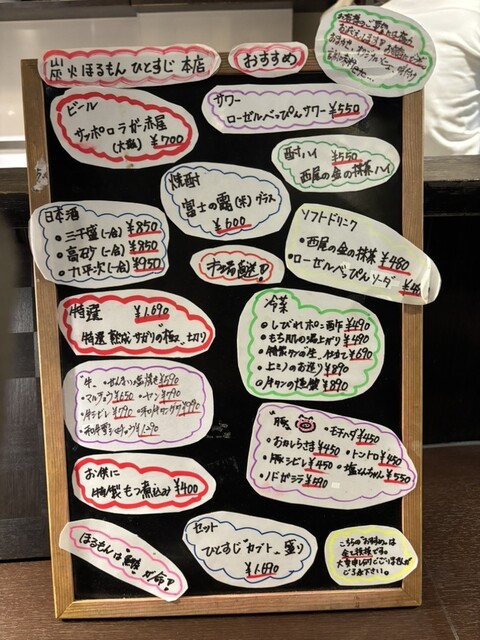 炭火ほるもん ひとすじ 本店
おすすめ
ビール
サッポロラガー赤星
(大瓶) ¥700
サワー
ローゼルべっぴんサワー ¥550
酎ハイ ¥550
西尾の金の抹茶ハイ
焼酎
富士の露(米)グラス
¥600
日本酒
・三千盛(一合) ¥850
・高砂(一合) ¥850
・九平次(一合) ¥950
ソフトドリンク
・西尾の金の抹茶 ¥480
・ローゼルべっぴんソーダ
特選 ¥1.690
特選 サガリの極上
冷菜
・しびれポン酢 ¥490
・もち肌の湯上がり ¥490
¥690
・上ミノのお造り ¥890
・牛タンの燻製 ¥890
牛
¥690
・マルチョウ ¥650 ・ヤン ¥790
・牛シビレ ¥790
¥1,290
豚 ・モチハダ ¥450
・おかしらさま ¥450 ・トントロ ¥450
・豚シビレ ¥450 ・塩とんちゃん ¥550
・ノドガシラ ¥590
お供に
特製もつ煮込み ¥400
ほるもんは"鮮度"が命!
セット
ひとすじ"カブト"盛り
¥1.690
こちらの"おすすめ"は
全て税抜です。
大変申し訳ございませんが
ご了承下さい。